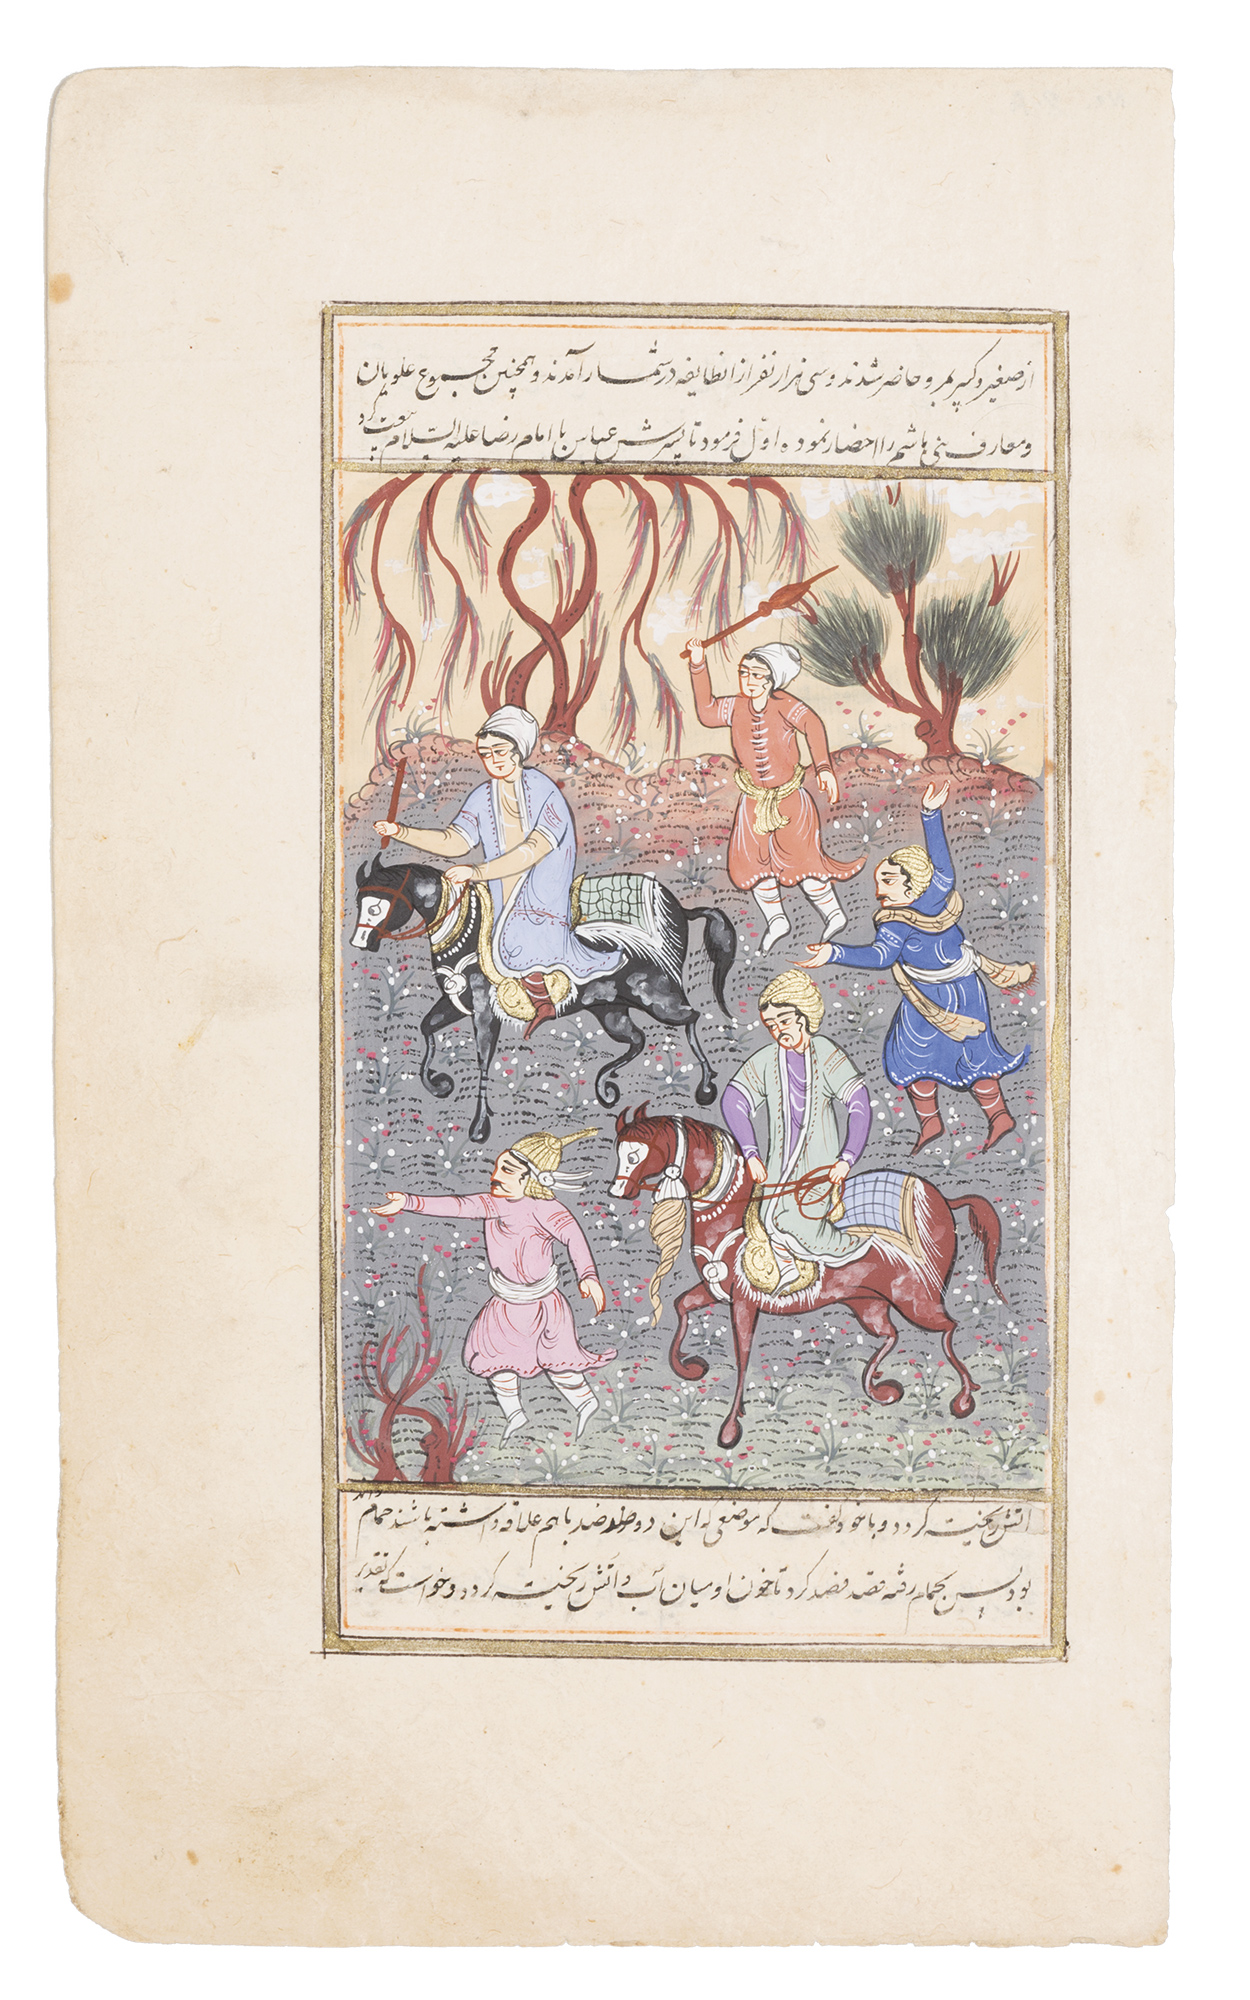 از صغیر و کبیر بمرو حاضر شدند و سی هزار نفر از انطایفه در شمار آمدند و همچنین مجموع علویان
و معارف بنی هاشم را احضار نموده اول فرمود تا پسرش عباس با امام رضا علیه السلام بیعت کرد
اتش ریخته گردد و با خود گفت که موضعی که این دو ضد باهم علاقه داشته باشند حمام
بود پس بحمام رفته قصد فصد کرد تا خون او میان آب و اتش ریخته گردد و خواست که تقدیر